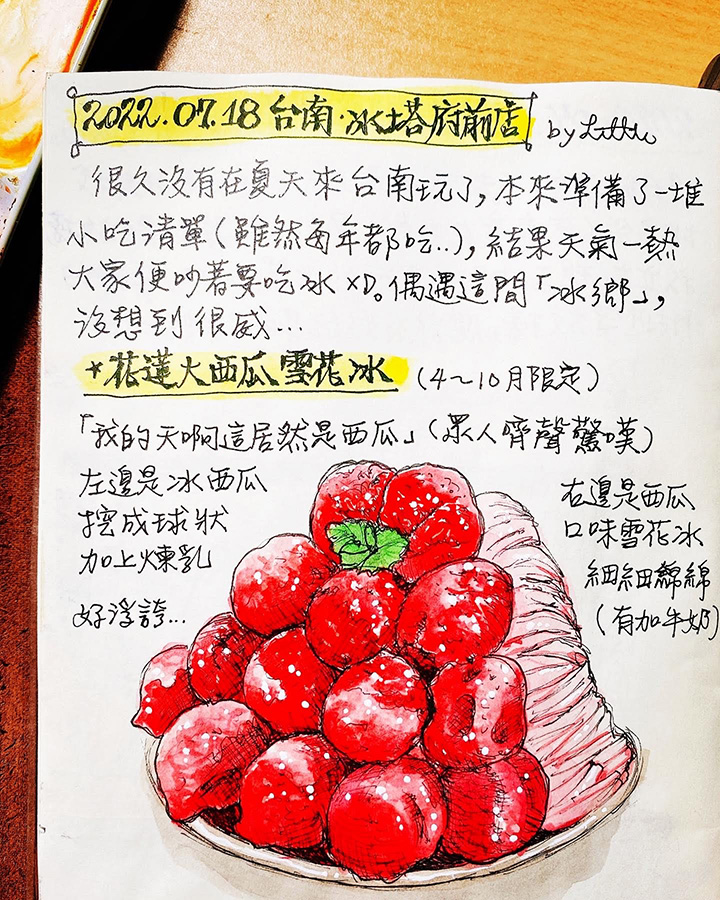 2022.07.18 台南·冰塔府前店 by Little
很久沒有在夏天來台南玩了, 本來準備了一堆
小吃清單(雖然每年都吃..), 結果天氣一熱
大家便吵著要吃冰XD。偶遇這間「冰鄉」,
沒想到很威...
★花蓮大西瓜雪花冰 (4~10月限定)
「我的天啊這居然是西瓜」(眾人齊聲驚嘆)
左邊是冰西瓜
挖成球狀
加上煉乳
好浮誇...
右邊是西瓜
口味雪花冰
細細綿綿
(有加牛奶)